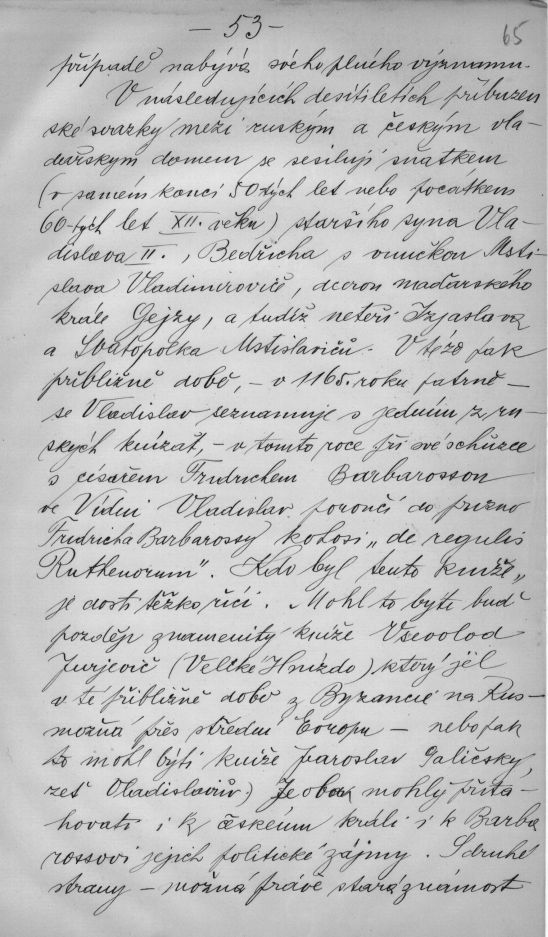 — 53 — 65
případě nabývá svého plného významu.
V následujících desítiletích příbuzen
ské svazky mezi ruským a českým vla-
dařským domem se sesilují sňatkem
(v samém konci 50tých let nebo počátkem
60-tých let XII. věku) staršího syna Vla-
dislava II., Bedřicha s vnučkou Msti-
slava Vladimiroviče, dcerou maďarského
krále Gejzy, a tudíž neteří Izjaslava
a Svatopolka Mstislavičů. V téže pak
přibližně době, – v 1165. roku patrně –
se Vladislav seznamuje s jedním z ru-
ských knížat, – v tomto roce při své schůzce
s císařem Fridrichem Barbarossou
ve Vídni Vladislav poroučí do přízně
Fridricha Barbarossy kohosi „de regulis
Ruthenorum". Kdo byl tento kníže„
je dosti těžko říci. Mohl to býti buď
později znamenitý kníže Vsevolod
Jurjevič (Velké Hnízdo) který jel
v té přibližně době z Byzancie na Rus–
možná přes střední Evropu – nebo pak
to mohl býti kníže Jaroslav Galičský,
zeť Vladislavův.) Je oba mohly přita-
hovati i k českému králi i k Barba
rossovi jejich politické zájmy. S druhé
strany – možná právě stará známost